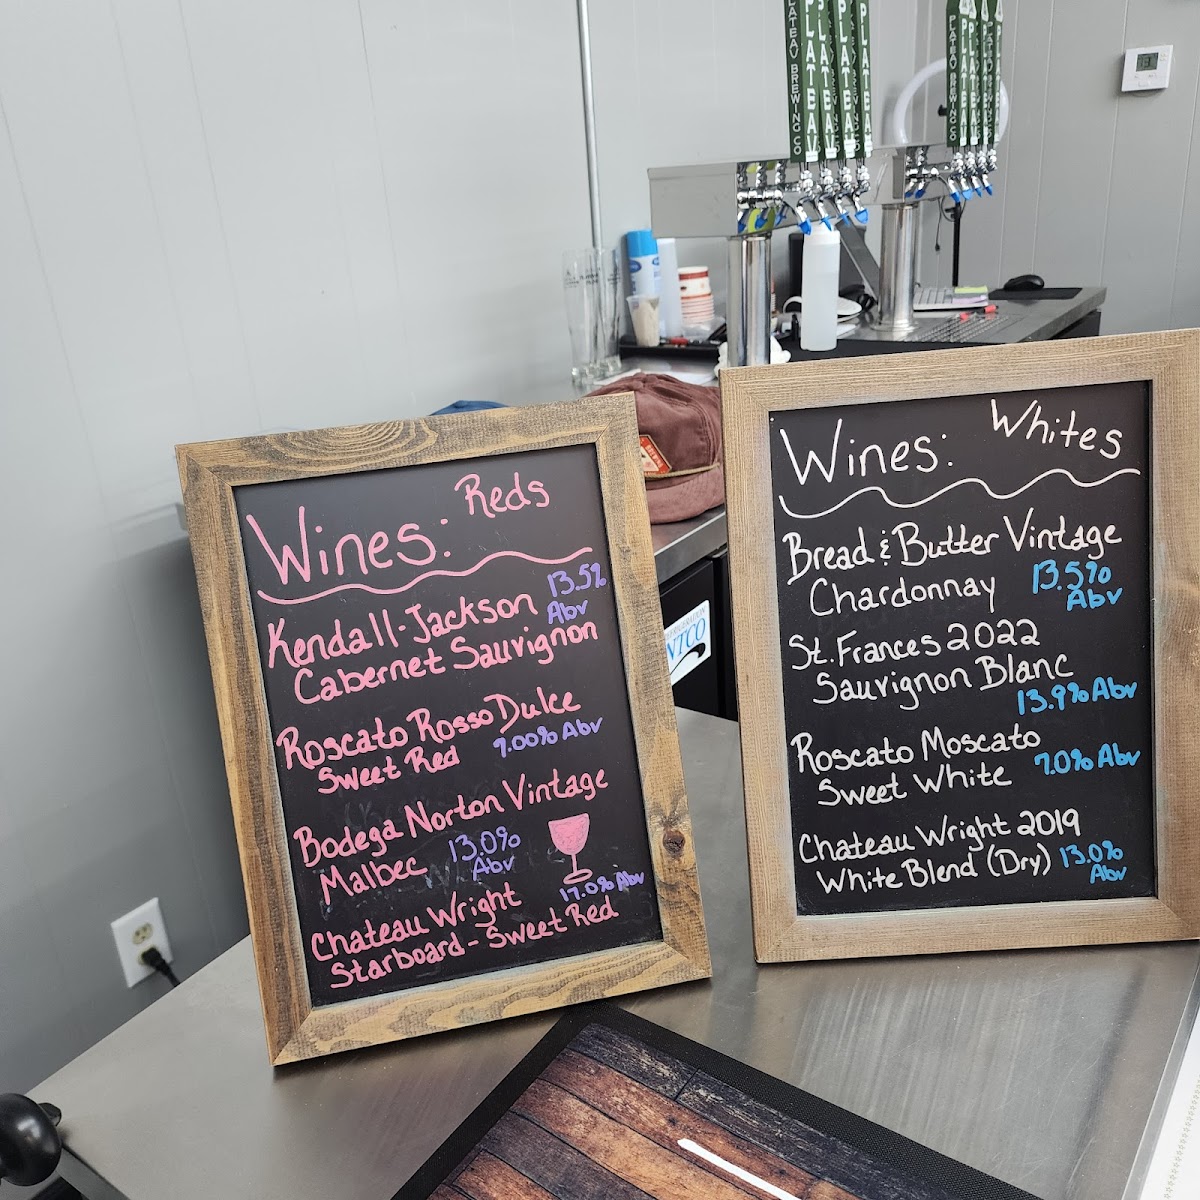 PLATEAU BREWING CO
PLATEAU
PLATEAU
PLATEAU
PLATEAU BREWING CO
PLATEAU
Wines: Reds
Kendall-Jackson 13.5% Abv
Cabernet Sauvignon
Roscato Rosso Dulce
Sweet Red 7.00% Abv
Bodega Norton Vintage
Malbec 13.0% Abv
Chateau Wright 17.0% Abv
Starboard - Sweet Red
Wines: Whites
Bread & Butter Vintage
Chardonnay 13.5% Abv
St. Frances 2022
Sauvignon Blanc
13.9% Abv
Roscato Moscato
Sweet White 7.0% Abv
Chateau Wright 2019
White Blend (Dry) 13.0% Abv